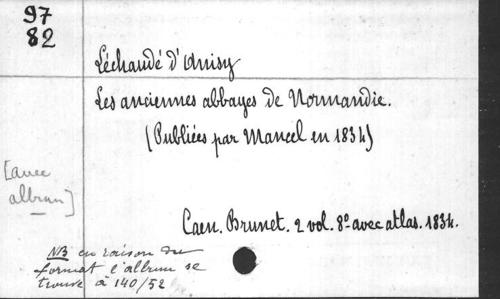 97
82
Léchaudé d'Anisy
Les anciennes abbayes de Normandie.
(Publiées par Mancel en 1834)
[avec
album]
Caen. Brunet. 2 vol. 8º avec atlas. 1834.
NB en raison du
format l'album se
trouve à 140/52